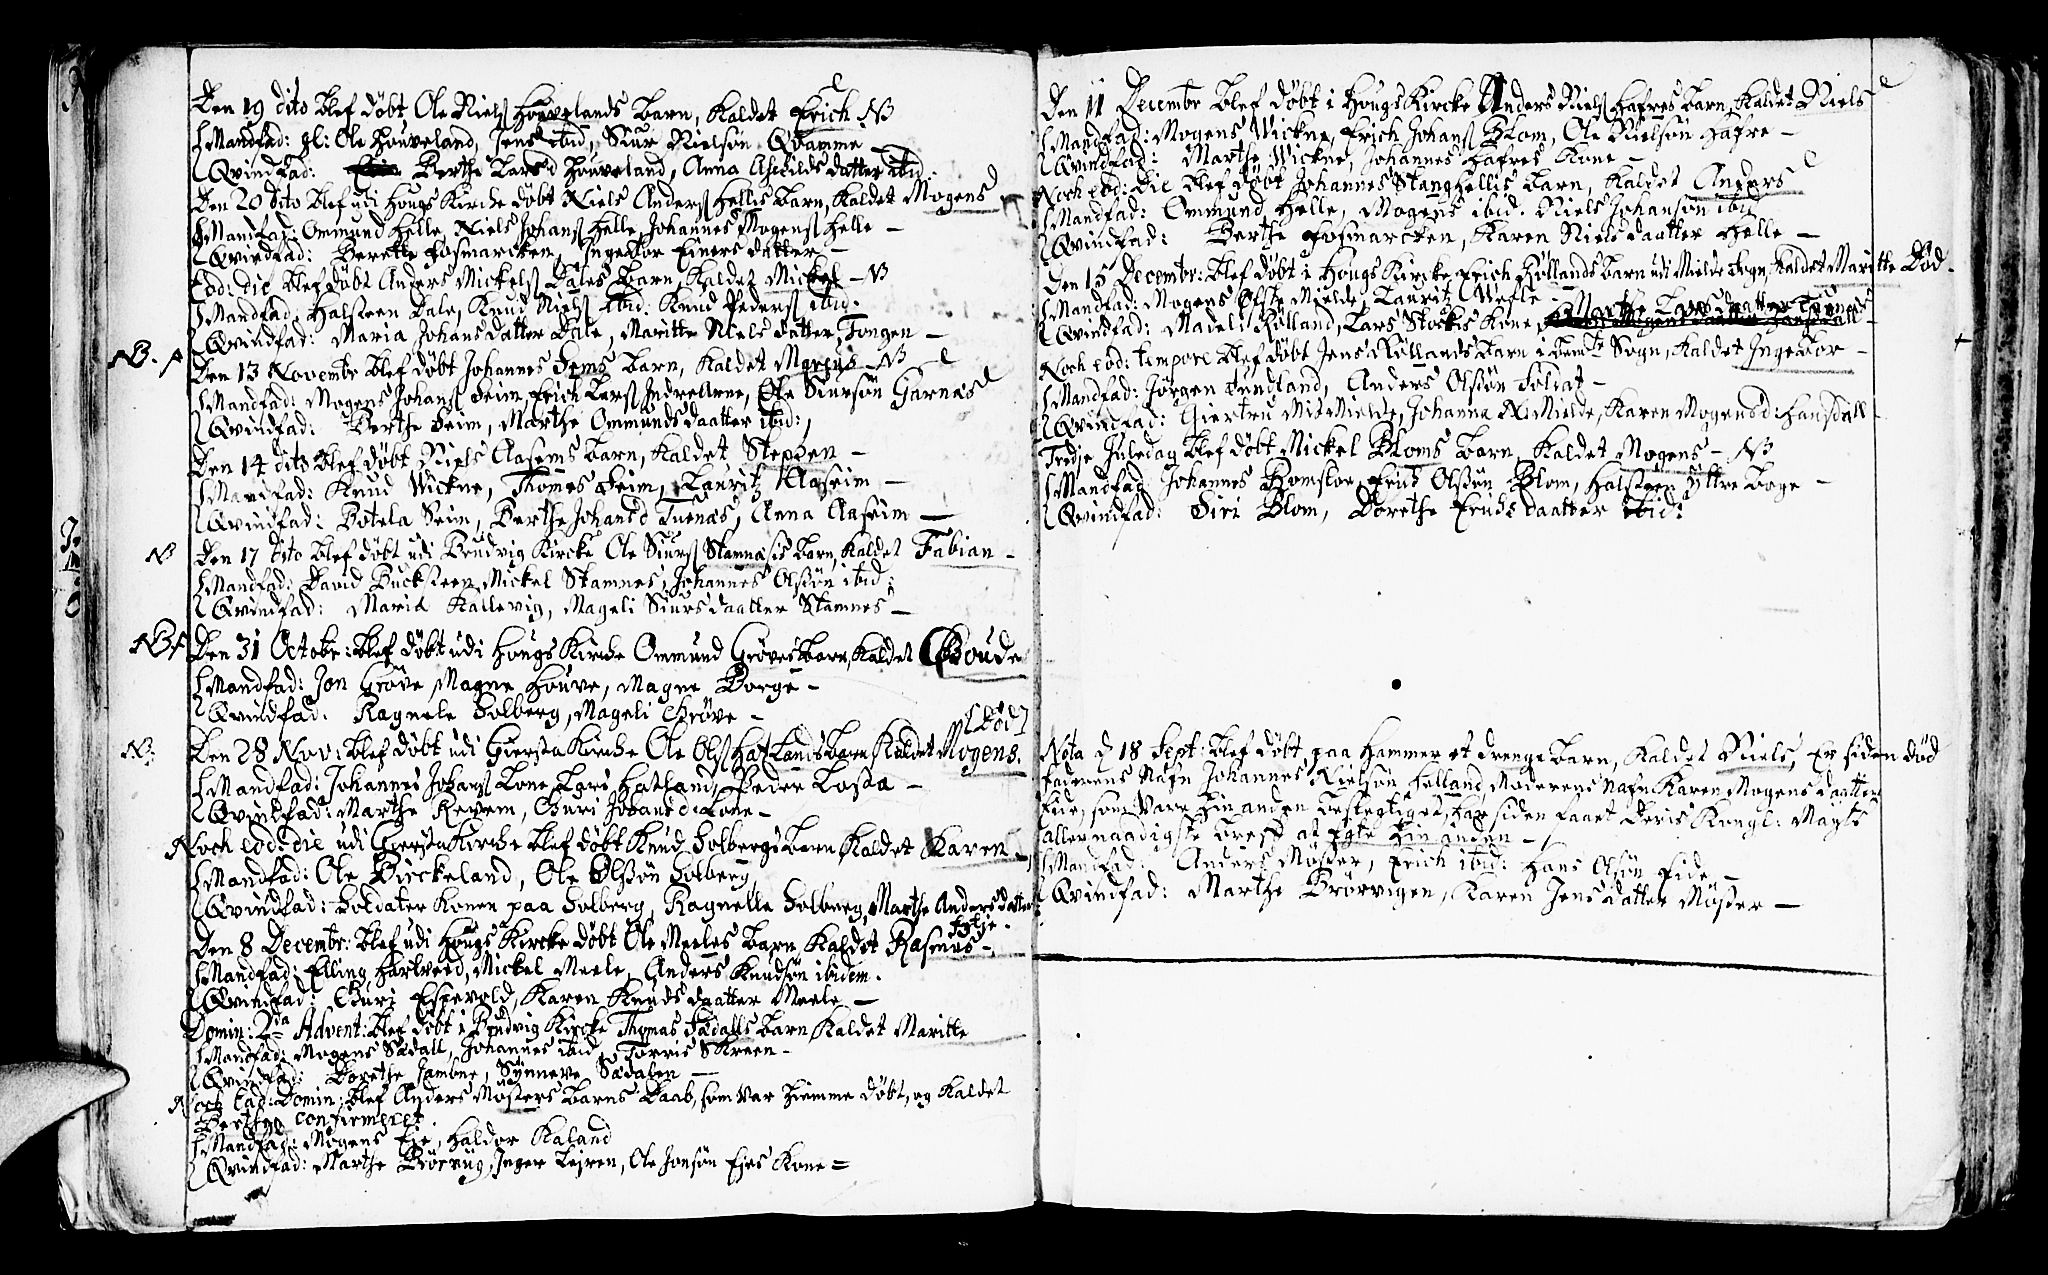 Den 19 dito blef döbt Ole Niels Houvelands Barn, kaldet Erich. NB
Mandfad: gl: Ole Houveland, Jens ibid, Siur Nielsön Qvamme
Qvindfad: Berthe Lars d Houveland, Anna Aschilds datter ibid.
Den 20 dito blef udi Hougs Kirche döbt Niels Anders Hellis Barn, kaldet Mogens
Mandfad: Ommund Helle, Niels Johans Helle, Johannes Mogens Helle –
Qvindfad: Berette Fosmarcken, Ingebor Einersdatter –
Eod: die blef döbt Anders Mickels Dales Barn, kaldet Mickel – NB
Mandfad: Halsteen Dale, Knud Niels ibid: Knud Peders ibid:
Qvindfad: Maria Johans datter Dale, Maritte Niels datter Fongen –
NB. Den 13 Novembr blef döbt Johannes Sems Barn, kaldet Marcus – NB
Mandfad: Mogens Johans Seim, Erich Lars Indre Arne, Ole Siursön Garnæs
Qvindfad: Berthe Seim, Marthe Ommunds daatter ibid:
Den 14 dito blef döbt Niels Aaseims Barn, kaldet Steffen –
Mandfad: Knud Wickne, Thomes Seim, Lauritz Aaseim –
Qvindfad: Botela Seim, Berthe Johans d Tuenæs, Anna Aaseim –
NB Den 17 dito blef döbt udi Brudvig Kircke Ole Siurs Stamnæsis Barn, kaldet Fabian –
Mandfad: David Bucksteen, Mickel Stamnes, Johannes Olsön ibid:
Qvindfad: Maria Kallevig, Mageli Siurs daatter Stamnes –
NB Den 31 Octobr: blef döbt udi Hougs Kirche Ommund Gröves Barn, kaldet Boude
Mandfad: Jon Gröve, Magne Houve, Magne Borge –
Qvindfad: Ragnele Solberg, Mageli Gröve –
[Död]
NB: Den 28 Nov: blef döbt udi Giersta Kirche Ole Ols Hatlands Barn kaldet Mogens.
Mandfad: Johannes Johans Lone, Lars Hatland, Peder Losta –
Qvindfad: Marthe Revem, Guri Johans d: Lone –
Noch eod: die udi Giersta Kirche blef döbt Knud Solbergs Barn kaldet Karen –
Mandfad: Ole Birckeland, Ole Olsön Solberg
Qvindfad: Soldater Konen paa Solberg, Ragnelle Solberg, Marthe Anders datter
Den 8 Decembr: blef udi Hougs Kircke döbt Ole Meeles Barn kaldet Rasmus –
Mandfad: Elling Hartveed, Mickel Meele, Anders Knudsön ibidem.
Qvindfad: Guri Espevold, Karen Knuds daatter Meele –
Domin: 2da Advent: blef döbt i Brudvig Kircke Thomas Sædalls Barn kaldet Maritte
Mandfad: Mogens Sædall, Johannes ibid, Torris Skreen –
Qvindfad: Dorethe Jambne, Synneve Sædalen –
Noch Ead: Domin: blef Anders Mösters Barns Daab, som var hiemme döbt, og kaldet
Berthe confirmeret.
Mandfad: Mogens Eje, Haldor Kaland
Qvindfad: Marthe Brörvig, Inger Leiren, Ole Jonsön Ejes Kone =
Den 11 Decembr blef döbt i Hougs Kircke Anders Niels Hafres Barn, kaldet Niels
Mandfad: Mogens Wickne, Erich Johans Blom, Ole Nielsön Hafre –
Qvindfad: Marthe Wickne, Johannes Hafres Kone –
Noch eod: Die blef döbt Johannes Stanghellis Barn, kaldet Anders
Mandfad: Ommund Helle, Mogens ibid. Niels Johansön ibid
Qvindfad: Berthe Fosmarcken, Karen Niels daatter Helle –
Den 15 Decembr: blef döbt i Hougs Kircke Erich Röllands Barn udi Mielde Sogn, kaldet Maritte Död.
Mandfad: Mogens Mielde, Lauritz
Qvindfad: Madeli Rölland, Lars Stockis Kone, Marthe Lars daatter
Noch eod: tempore blef döbt Jens Röllands Barn i bemte Sogn, kaldet Ingebor –
Mandfad: Jörgen Sundland, Anders Olsön Soldat –
Qvindfad: Giertru Mielde, Johanna N: Mielde, Karen Mogens d: Hansdall –
Tredje Juledag blef döbt Mickel Bloms Barn, kaldet Mogens – NB
Mandfad Johannes Romslo, Erich Olsön Blom, Halsteen Yttre Boge –
Qvindfad: Siri Blom, Dorethe Erichs daatter ibid:
Nota d 18 Sept: blef döbt paa Hammer et drenge Barn, kaldet Niels, er siden död
Faderens Nafn Johannes Nielsön Falland, Moderens Nafn Karen Mogens daatter
Eide, som vare hin anden beslegtiget, har siden faaet Deris Kongl: Mayts
allernaadigste breff at Egte hin anden –
Mandfad: Anders Möster, Erich ibid: Hans Olsön Eide –
Qvindfad: Marthe Brörvigen, Karen Jens datter Möster –